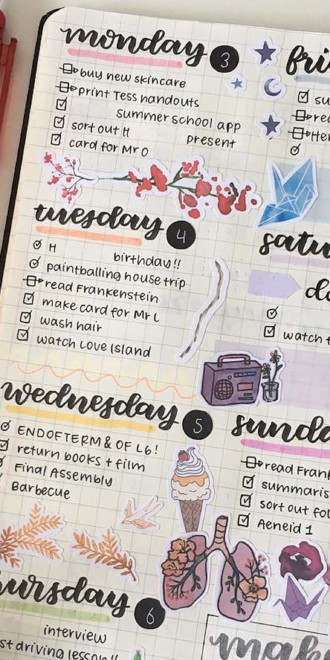 monday 3
buy new skincare
print Tess handouts
summer school app
sort out H present
card for Mr O
tuesday 4
H birthday!!
paintballing house trip
read Frankenstein
make card for Mr L
wash hair
watch Love Island
wednesday 5
END OF TERM & OF L6!
return books + film
Final Assembly
Barbecue
ursday 6
interview
st driving lesson!!
fri
su
rea
satu
d
watch
sunda
read Fran
summaris
sort out fol
Aeneid 1
mak